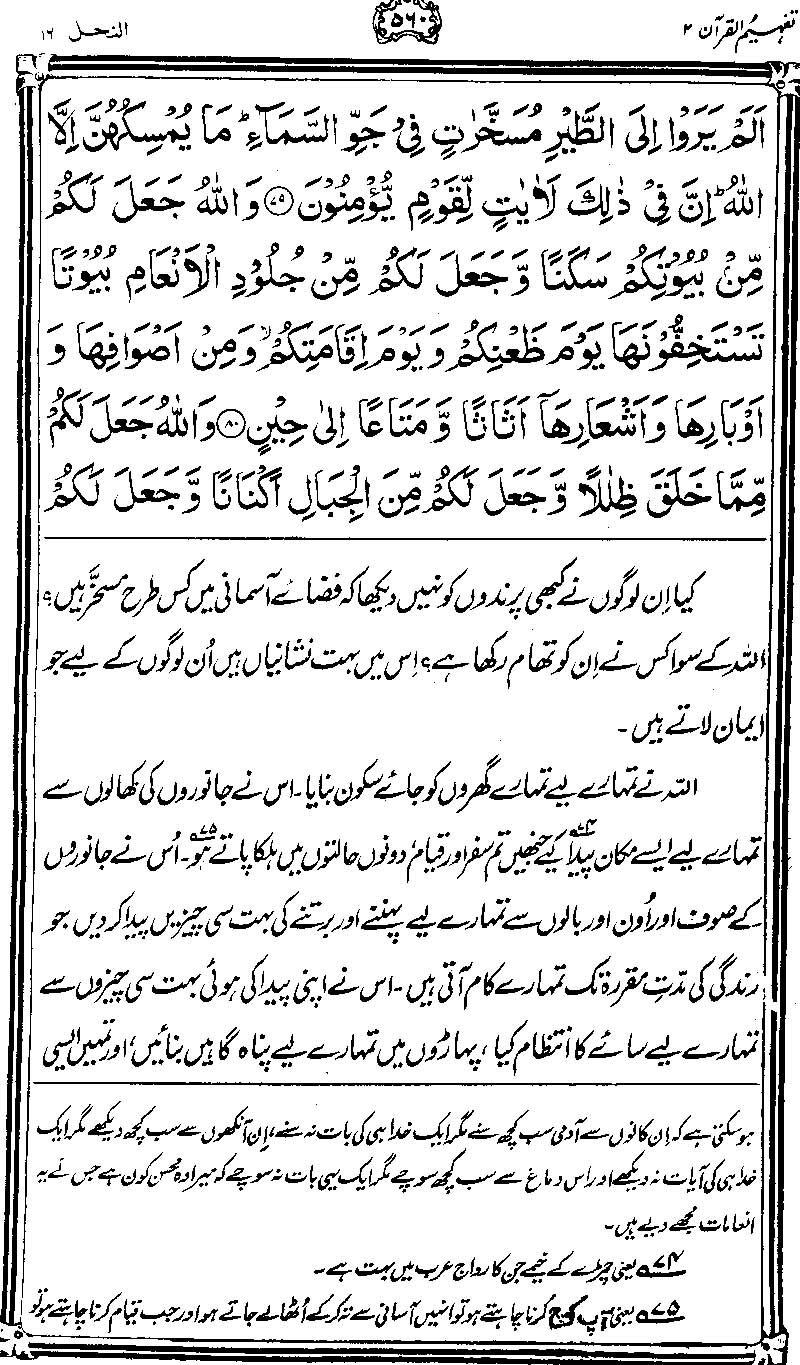 تفہیم القرآن ۲
۵۶۰
النحل ۱۶
اَلَمْ يَرَوْا اِلَى الطَّيْرِ مُسَخَّرٰتٍ فِيْ جَوِّ السَّمَآءِ ؕ مَا يُمْسِكُهُنَّ اِلَّا
اللّٰهُ ؕ اِنَّ فِيْ ذٰلِكَ لَاٰيٰتٍ لِّقَوْمٍ يُّؤْمِنُوْنَ ﴿۷۹﴾ وَاللّٰهُ جَعَلَ لَكُمْ
مِّنْۢ بُيُوْتِكُمْ سَكَنًا وَّجَعَلَ لَكُمْ مِّنْ جُلُوْدِ الْاَنْعَامِ بُيُوْتًا
تَسْتَخِفُّوْنَهَا يَوْمَ ظَعْنِكُمْ وَيَوْمَ اِقَامَتِكُمْ ۙ وَمِنْ اَصْوَافِهَا وَ
اَوْبَارِهَا وَاَشْعَارِهَآ اَثَاثًا وَّمَتَاعًا اِلٰى حِيْنٍ ﴿۸۰﴾ وَاللّٰهُ جَعَلَ لَكُمْ
مِّمَّا خَلَقَ ظِلٰلًا وَّجَعَلَ لَكُمْ مِّنَ الْجِبَالِ اَكْنَانًا وَّجَعَلَ لَكُمْ
کیا اِن لوگوں نے کبھی پرندوں کو نہیں دیکھا کہ فضائے آسمانی میں کس طرح مسخَّر ہیں؟
اللہ کے سوا کس نے اِن کو تھام رکھا ہے؟ اِس میں بہت نشانیاں ہیں اُن لوگوں کے لیے جو
ایمان لاتے ہیں۔
اللہ نے تمہارے لیے تمہارے گھروں کو جائے سکون بنایا۔ اس نے جانوروں کی کھالوں سے
تمہارے لیے ایسے مکان پیدا کیے ۷۴ جنھیں تم سفر اور قیام دونوں حالتوں میں ہلکا پاتے ہو ۷۵۔ اُس نے جانوروں
کے صوف اور اُون اور بالوں سے تمہارے لیے پہننے اور برتنے کی بہت سی چیزیں پیدا کر دیں جو
زندگی کی مدّتِ مقررہ تک تمہارے کام آتی ہیں۔ اس نے اپنی پیدا کی ہوئی بہت سی چیزوں سے
تمہارے لیے سائے کا انتظام کیا، پہاڑوں میں تمہارے لیے پناہ گاہیں بنائیں، اور تمہیں ایسی
ہو سکتی ہے کہ اِن کانوں سے آدمی سب کچھ سنے مگر ایک خدا ہی کی بات نہ سنے، اِن آنکھوں سے سب کچھ دیکھے مگر ایک
خدا ہی کی آیات نہ دیکھے اور اس دماغ سے سب کچھ سوچے مگر ایک یہی بات نہ سوچے کہ میرا وہ محسن کون ہے جس نے یہ
انعامات مجھے دیے ہیں۔
۷۴ یعنی چمڑے کے خیمے جن کا رواج عرب میں بہت ہے۔
۷۵ یعنی جب کوچ کرنا چاہتے ہو تو انہیں آسانی سے تہ کر کے اُٹھا لے جاتے ہو اور جب قیام کرنا چاہتے ہو تو